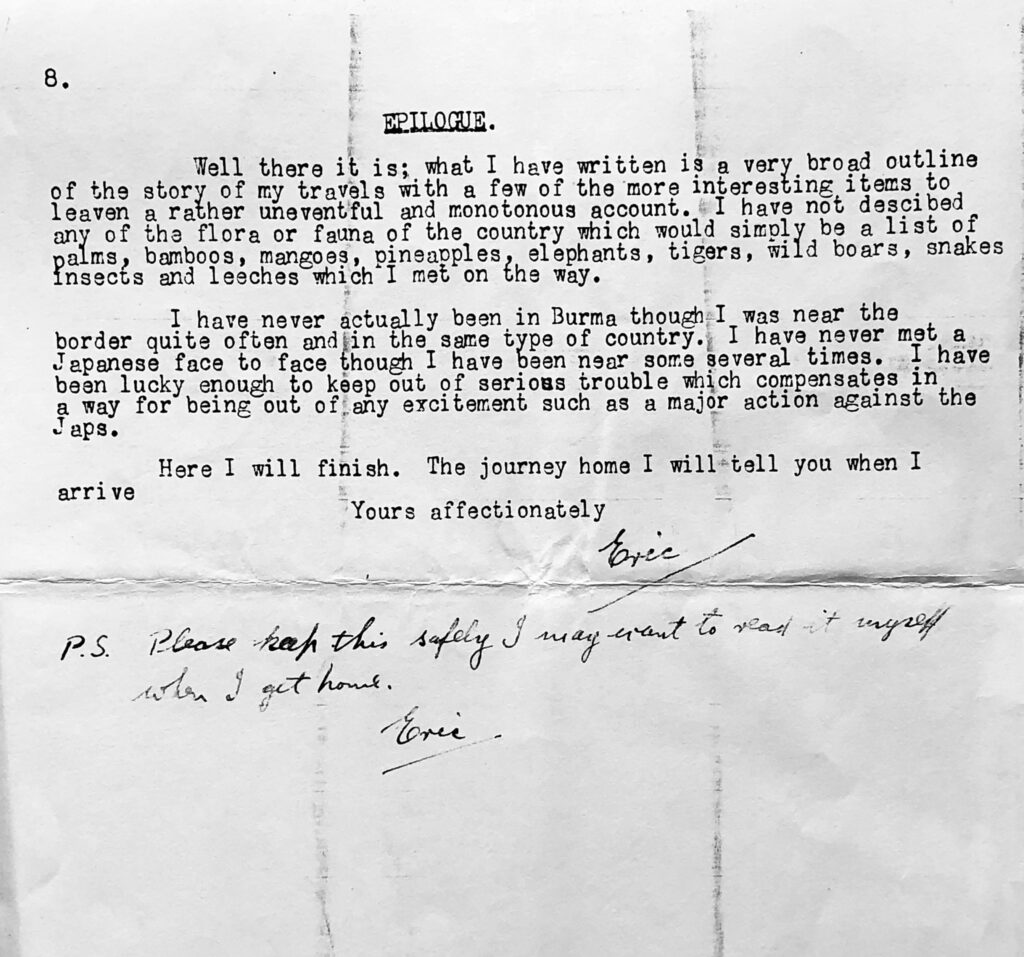 8.
EPILOGUE.
Well there it is; what I have written is a very broad outline
of the story of my travels with a few of the more interesting items to
leaven a rather uneventful and monotonous account. I have not descibed
any of the flora or fauna of the country which would simply be a list of
palms, bamboos, mangoes, pineapples, elephants, tigers, wild boars, snakes
insects and leeches which I met on the way.
I have never actually been in Burma though I was near the
border quite often and in the same type of country. I have never met a
Japanese face to face though I have been near some several times. I have
been lucky enough to keep out of serious trouble which compensates in
a way for being out of any excitement such as a major action against the
Japs.
Here I will finish. The journey home I will tell you when I
arrive
Yours affectionately
Eric
P.S. Please keep this safely I may want to read it myself
when I get home.
Eric